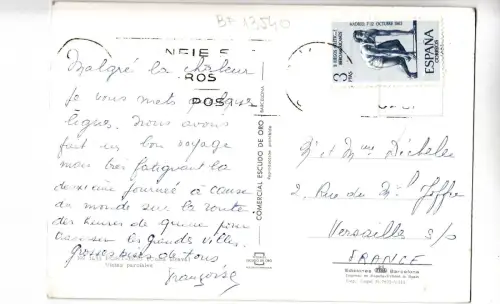 BF 13.540
NEIE S
ROS
POS
Malgré la chaleur
je vous mets quelques
lignes. Nous avons
fait un bon voyage
mais très fatiguant la
deuxième journée à cause
du monde sur la route
des heures de queue pour
traverser les grandes villes.
Grosses bises à tous
Françoise
COMERCIAL ESCUDO DE ORO
BARCELONA
Reproducción prohibida
MADRID 7-12 OCTUBRE 1962
3
PTAS
ESPAÑA
CORREOS
Mr et Mme
2 Rue du Mal Joffre
Versailles S/O
FRANCE
Barcelona